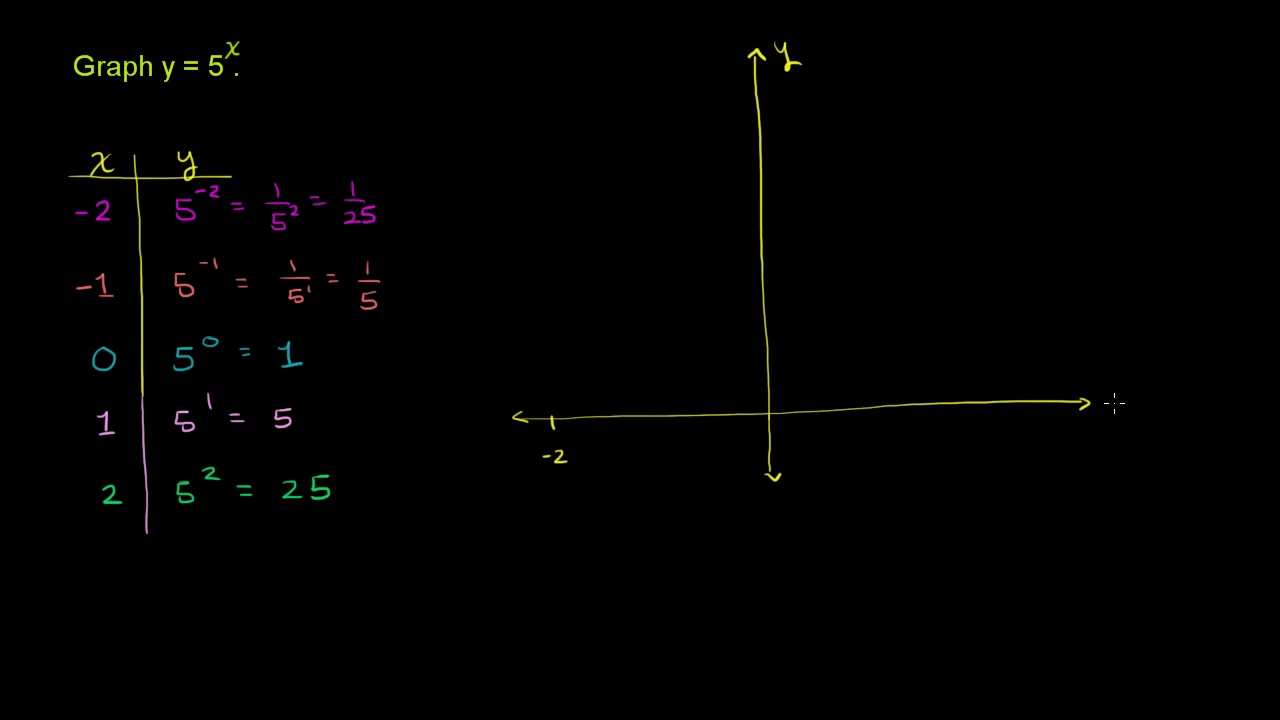 Graph y = 5^x.
y
x y
-2 5^-2 = 1/5^2 = 1/25
-1 5^-1 = 1/5^1 = 1/5
0 5^0 = 1
1 5^1 = 5
-2
2 5^2 = 25